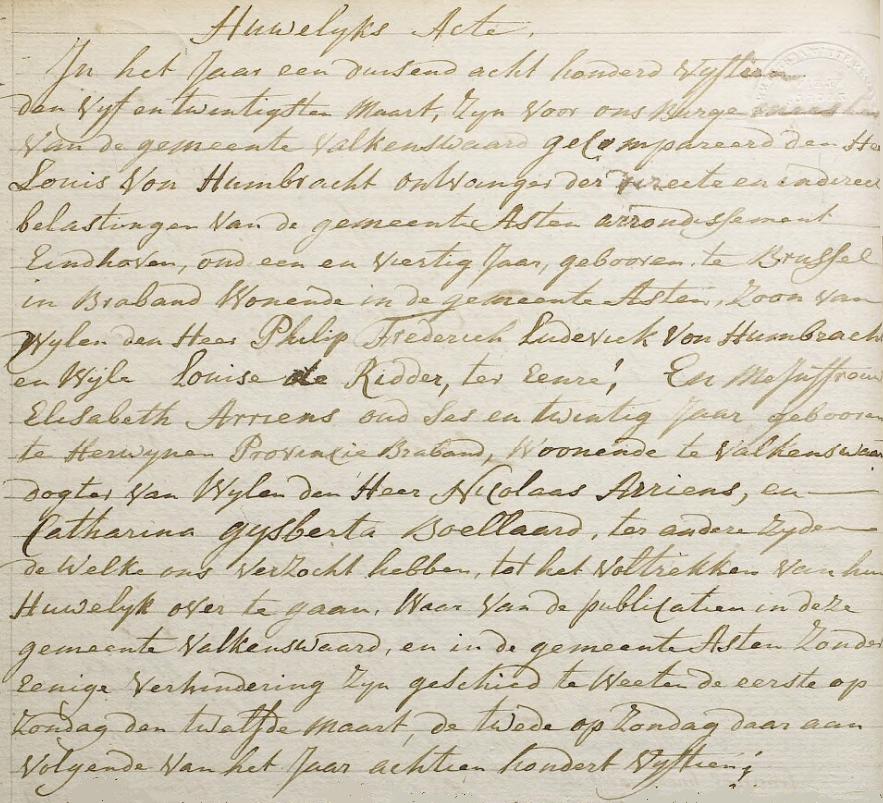 Huwelyks Acte.
In het Jaar een duisend acht honderd vyftien
den vyf en twintigsten Maart, Zyn voor ons Burge
van de gemeente Valkenswaard geCompareerd den He
Louis Von Humbracht ontvanger der directe en indirect
belastingen van de gemeente Asten arrondissement
Eindhoven, oud een en viertig Jaar, gebooren te Brussel
in Braband Wonende in de gemeente Asten, Zoon van
Wylen den Heer Philip Frederich Ludewick Von Humbrach
en Wyle Louise de Ridder, ter Eenre, En Mejuffrouw
Elisabeth Arriens oud Ses en twintig Jaar gebooren
te Herwynen Provincie Braband, Woonende te Valkenswaar
dogter van Wylen den Heer Nicolaas Arriens, en
Catharina gysberta Boellaard, ter andere Zyde
de Welke ons verzocht hebben, tot het voltrekken van hun
Huwelyk over te gaan, Waar van de publicatien in deze
gemeente Valkenswaard, en in de gemeente Asten Zonder
Eenige verhindering Zyn geschied te Weeten de eerste op
Zondag den twalfde Maart, de twede op Zondag daar aan
volgende van het Jaar achtien hondert vyftien;